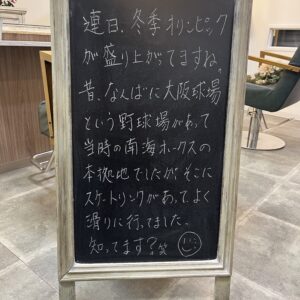 連日、冬季オリンピック
が盛り上がってますね。
昔、なんばに大阪球場
という野球場があって
当時の南海ホークスの
本拠地でしたが、そこに
スケートリンクがあって、よく
滑りに行ってました。
知ってます？笑